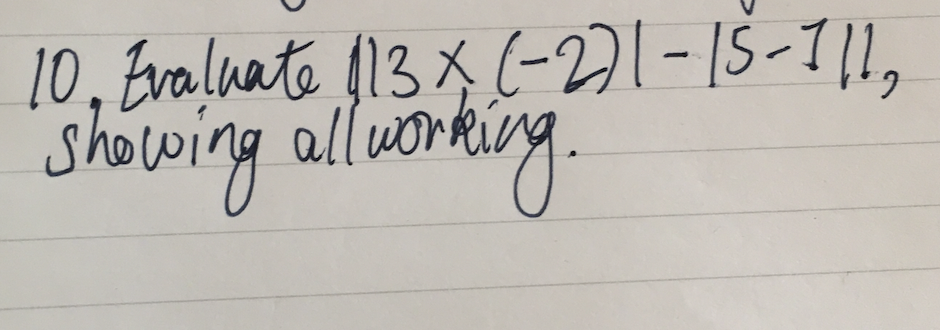 10. Evaluate ||3 × (-2)| - |5-7||,
showing all working.